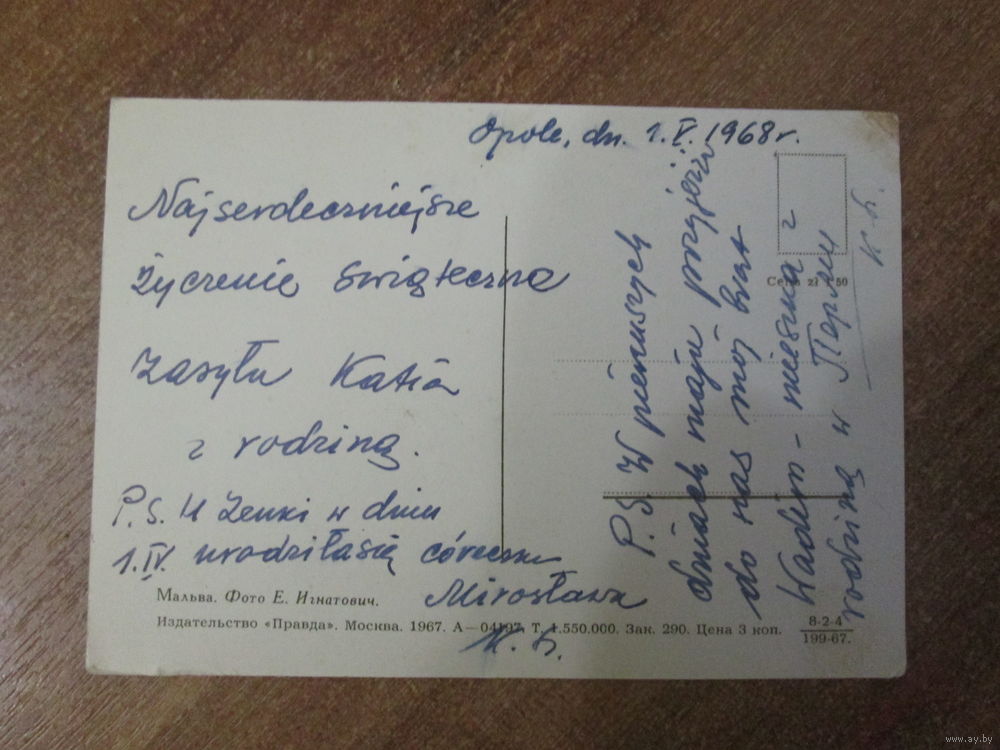 Opole, dn. 1.V.1968r.
Najserdeczniejsze
Życzenie świąteczne
zasyła Katia
z rodziną.
P.S. U Zenki w dniu
1.IV. urodziła się córeczka
Mirosława
K.b.
P.S. W pierwszych
dniach maja przyjeżdż
do nas mój brat
Wadim - mieszka z
rodziną w
K.b.
Cena zł 1.50
Мальва. Фото Е. Игнатович.
Издательство «Правда». Москва. 1967. А—04197. Т. 1.550.000. Зак. 290. Цена 3 коп. 8-2-4
199-67.
www.ay.by